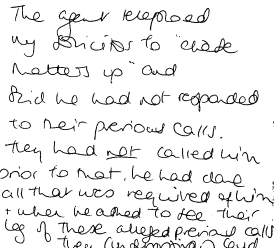 The agent telephoned
my solicitors to "chase
matters up" and
said he had not responded
to their previous calls.
They had not called him
prior to that, he had done
all that was required of him
+ when he asked to see their
log of these alleged previous calls
they